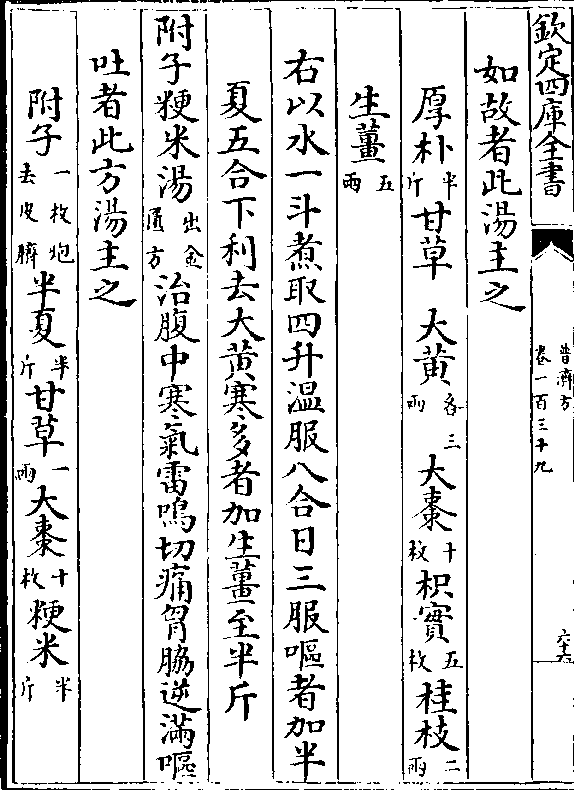 欽定四庫全書
普濟方
卷一百三十九
六十六
如故者此湯主之
厚朴半斤甘草 大黄各三兩 大棗十枚枳實五枚桂枝二兩
生薑五兩
右以水一斗煮取四升温服八合日三服嘔者加半
夏五合下利去大黄寒多者加生薑至半斤
附子粳米湯出金匱方治腹中寒氣雷鳴切痛胷脇逆滿嘔
吐者此方湯主之
附子一枚炮去皮臍半夏半斤甘草一兩大棗十枚粳米半斤